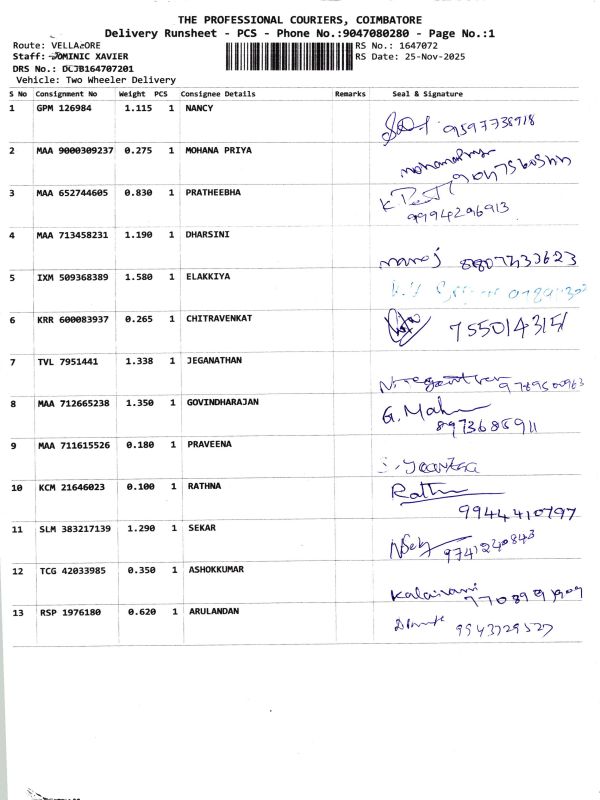 THE PROFESSIONAL COURIERS, COIMBATORE
Delivery Runsheet - PCS - Phone No.:9047080280 - Page No.:1
Route: VELLALORE RS No.: 1647072
Staff: DOMINIC XAVIER RS Date: 25-Nov-2025
DRS No.: DCJB164707201
Vehicle: Two Wheeler Delivery
S No Consignment No Weight PCS Consignee Details Remarks Seal & Signature
1 GPM 126984 1.115 1 NANCY
9597738918
2 MAA 9000309237 0.275 1 MOHANA PRIYA
3 MAA 652744605 0.830 1 PRATHEEBHA
9994296913
4 MAA 713458231 1.190 1 DHARSINI
manoj 8807433623
5 IXM 509368389 1.580 1 ELAKKIYA
6 KRR 600083937 0.265 1 CHITRAVENKAT
7550143151
7 TVL 7951441 1.338 1 JEGANATHAN
9789500963
8 MAA 712665238 1.350 1 GOVINDHARAJAN
G. Mahe
8973685911
9 MAA 711615526 0.180 1 PRAVEENA
10 KCM 21646023 0.100 1 RATHNA
Rathna
9944410797
11 SLM 383217139 1.290 1 SEKAR
9741240843
12 TCG 42033985 0.350 1 ASHOKKUMAR
Kalairani
7708991909
13 RSP 1976180 0.620 1 ARULANDAN
9943729527